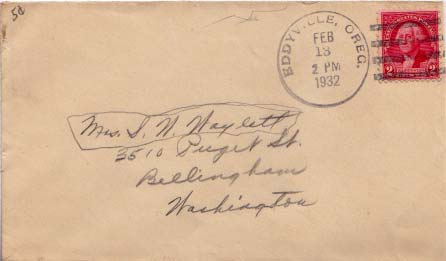 50
EDDYVILLE, OREG.
FEB
13
2 PM
1932
2 2
Mrs. D. N. Waylett
3510 Puget St.
Bellingham
Washington